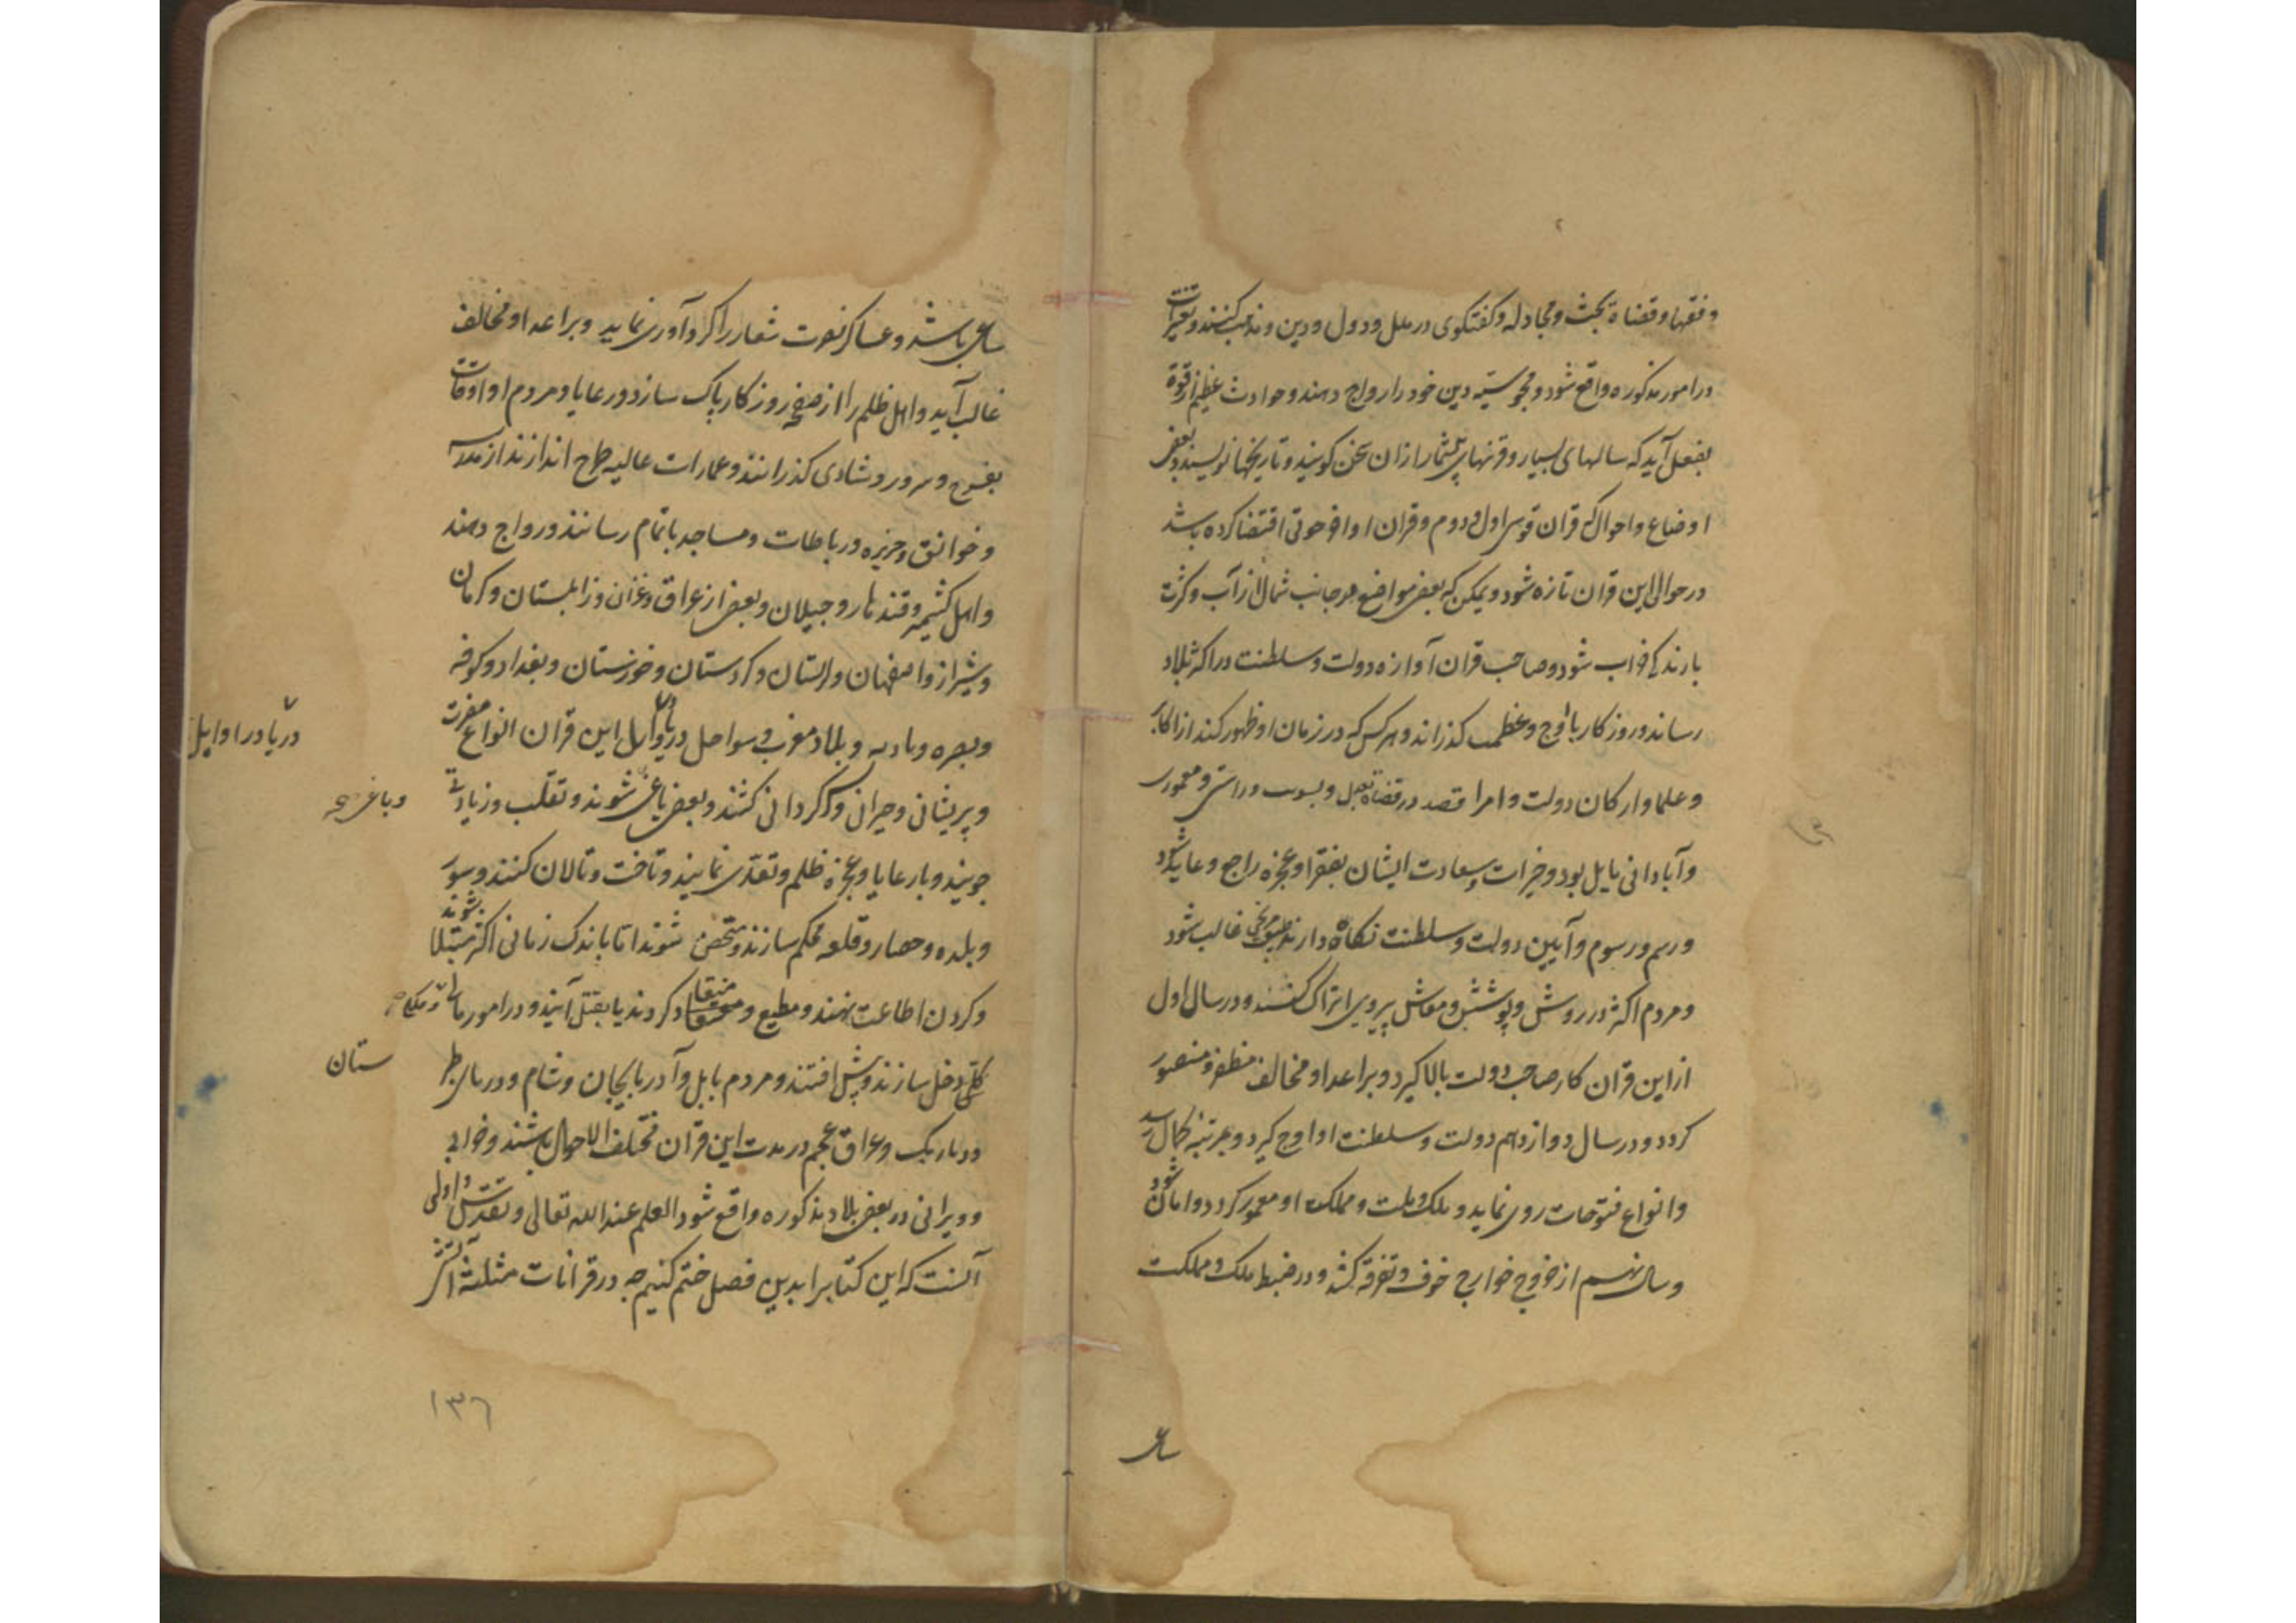 وفقها وقضاة بحث ومجادله وکفتکوی در ملل ودول ودین ومذهب کنند وتغییرات
در امور مذکوره واقع شود ومجوسیته دین خود را رواج دهند وحوادث عظیم از قوة
بفعل آید که سالهای بسیار وقرنهای بیشمار ازان سخن کویند وتاریخها نویسند وبعضی
اوضاع واحوال که قران قوسی اول ودوم وقران اقتضا کرده باشد
در حوالی این قران تازه شود ویمکن که بعضی مواضع در جانب شمال از آب وکثرت
بارندکی خراب شود وصاحب قران آوازه دولت وسلطنت در اکثر بلاد
رساند وروزکار باوج وعظمت کذراند وهر کس که در زمان او ظهور کند از اکابر
وعلما وارکان دولت وامرا وراستی ومعموری
وآبادانی مایل بود وخیرات وسعادت ایشان بفقرا وعجزه راجح وعاید شود
ورسم ورسوم وآیین دولت وسلطنت نکاه دارند غالب شود
ومردم اکثر در روش وپوشش ومعاش پیروی اتراک کنند ودر سال اول
از این قران کار صاحب دولت بالا کیرد وبر اعدا ومخالف مظفر ومنصور
کردد ودر سال دوازدهم دولت وسلطنت او اوج کیرد وبمرتبه کمال رسد
وانواع فتوحات روی نماید وملک وملت ومملکت او معمور کردد وامان شود
وسال نهم از خروج خوارج خوف وتفرقه کشد ودر ضبط ملک ومملکت
ساعی
ساعی باشد وعساکر نصرت شعار را کردآوری نماید وبر اعدا ومخالف
غالب آید واهل ظلم را از صفحه روزکار پاک سازد ورعایا ومردم او اوقات
بفرح وسرور وشادی کذرانند وعمارات عالیه طرح اندازند از مدارس
وخوانق وجزیره ورباطات ومساجد باتمام رسانند ورواج دهند
واهل کشمیر وقندهار وجیلان وبعضی از عراق وغزان وزابلستان وکرمان
وشیراز واصفهان ولرستان وکردستان وخوزستان وبغداد وکوفه
وبصره وبادیه وبلاد مغرب وسواحل دریا در اوایل این قران انواع مضرت
دریا در اوایل
وپریشانی وحیرانی وسرکردانی کشند وبعضی یاغی شوند وتغلب وزیادتی
ویاغی
جویند وبا رعایا وعجزه ظلم وتعدی نمایند وتاخت وتالان کنند وسور
وبلده وحصار وقلعه محکم سازند ومتحصن شوند اما باندک زمانی اکثر مبتلا شوند
وکردن اطاعت نهند ومطیع ومنقاد کردند یا بقتل آیند ودر امور مالی وملکی
کلی دخل سازند وپیش افتند ومردم بابل وآدربایجان وشام ودربار طبر
ستان
ودیار بک وعراق عجم در مدت این قران مختلف الاحوال باشند وخرابی
وویرانی در بعضی بلاد مذکوره واقع شود العلم عند الله تعالی وتقدس واولی
آنست که این کتابرا بدین فصل ختم کنیم چه در قرانات مثلثه آتشی
۱۳۶